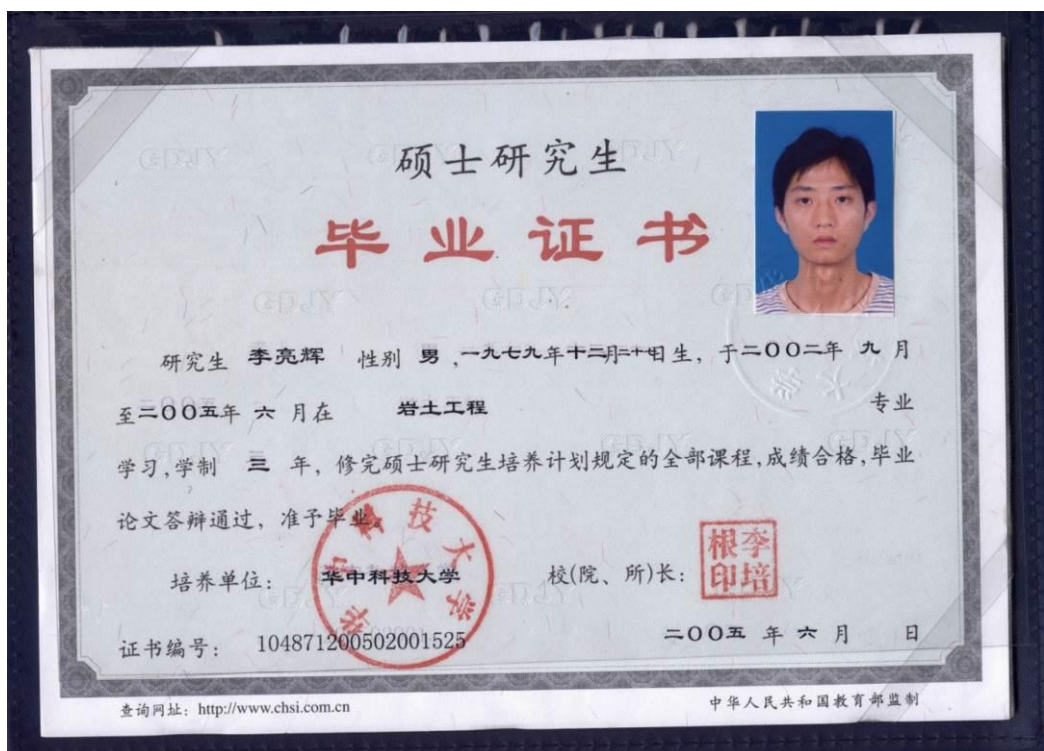 硕士研究生
毕业证书
研究生 李亮辉 性别 男 ,一九七九年十二月二十日生，于二〇〇二年 九 月
至二〇〇五年 六 月在 岩土工程 专业
学习,学制 三 年，修完硕士研究生培养计划规定的全部课程,成绩合格,毕业
论文答辩通过，准予毕业。
培养单位： 华中科技大学 校(院、所)长： 李培根印
华中科技大学
证书编号： 104871200502001525 二〇〇五 年 六 月 日
查询网址：http://www.chsi.com.cn 中华人民共和国教育部监制